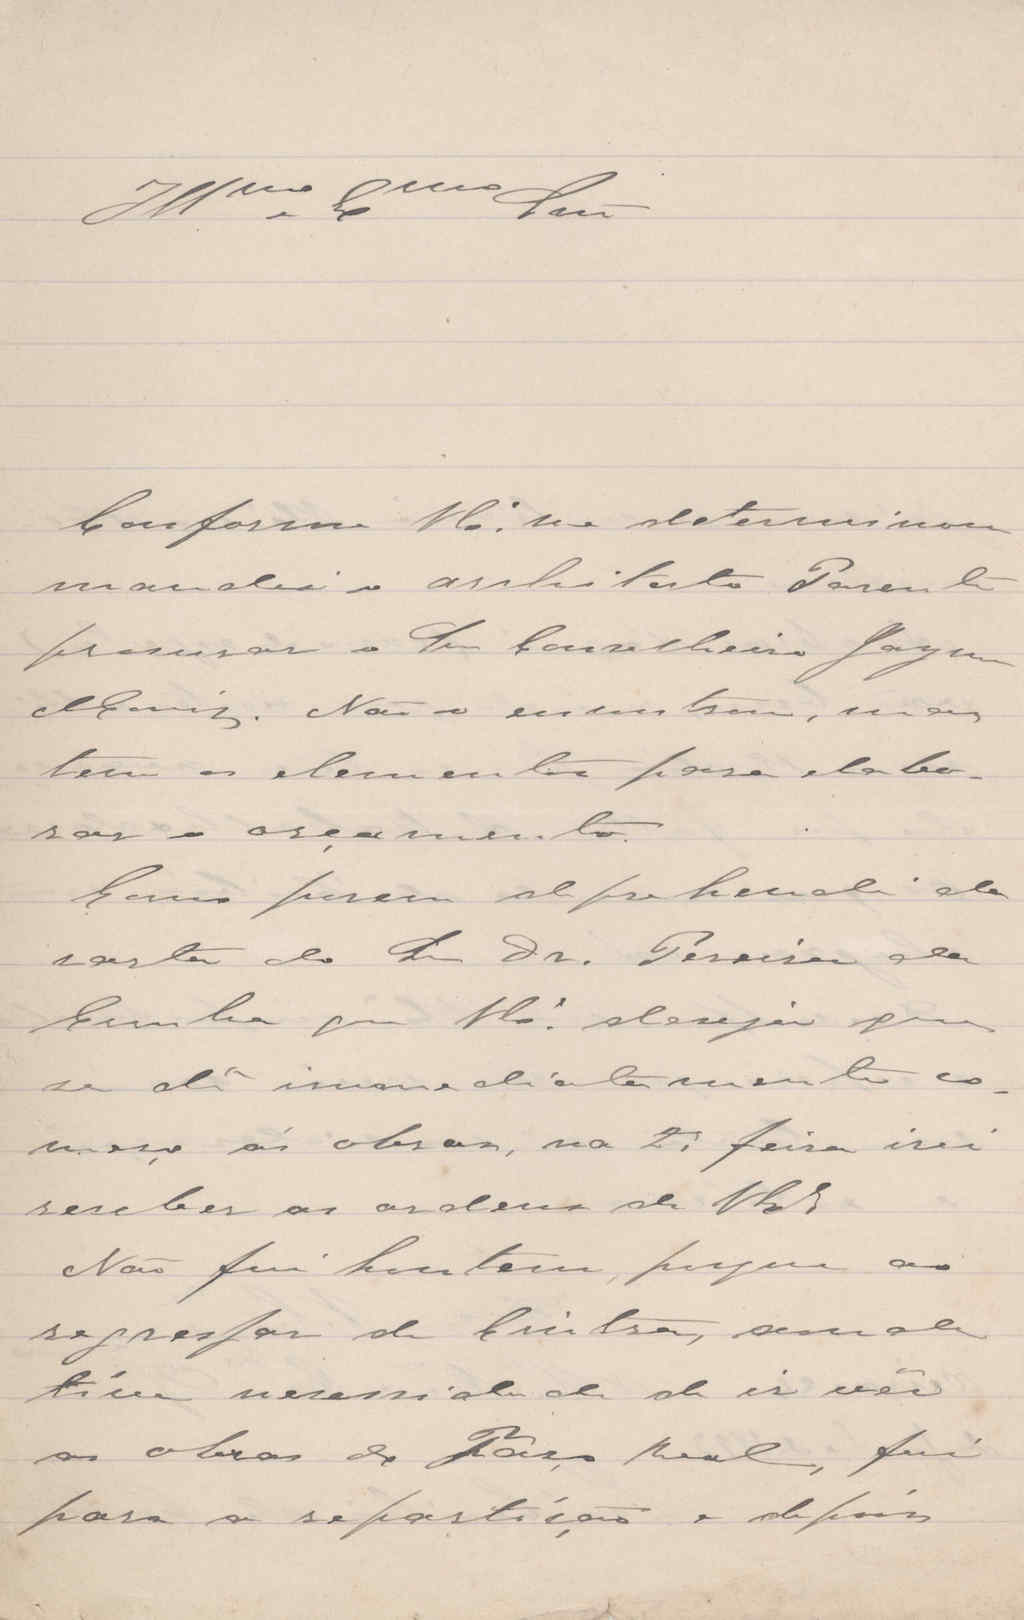 Ill^mo e Ex^mo Snr
Conforme V.Exª. me determinou
mandei o architecto Parente
procurar o Snr Conselheiro Jayme
Não o encontrou, mas
tem os elementos para elabo-
rar o orçamento.
Como porem deprehendi da
carta do Snr Dr. Pereira da
Cunha que V.Exª. deseja que
se dê immediatamente co-
meço ás obras, na 2ª feira irei
receber as ordens de V.Exª
Não fui hontem, porque ao
regressar de Cintra, aonde
tive necessidade de ir vêr
as obras do Paço Real, fui
para a repartição e depois